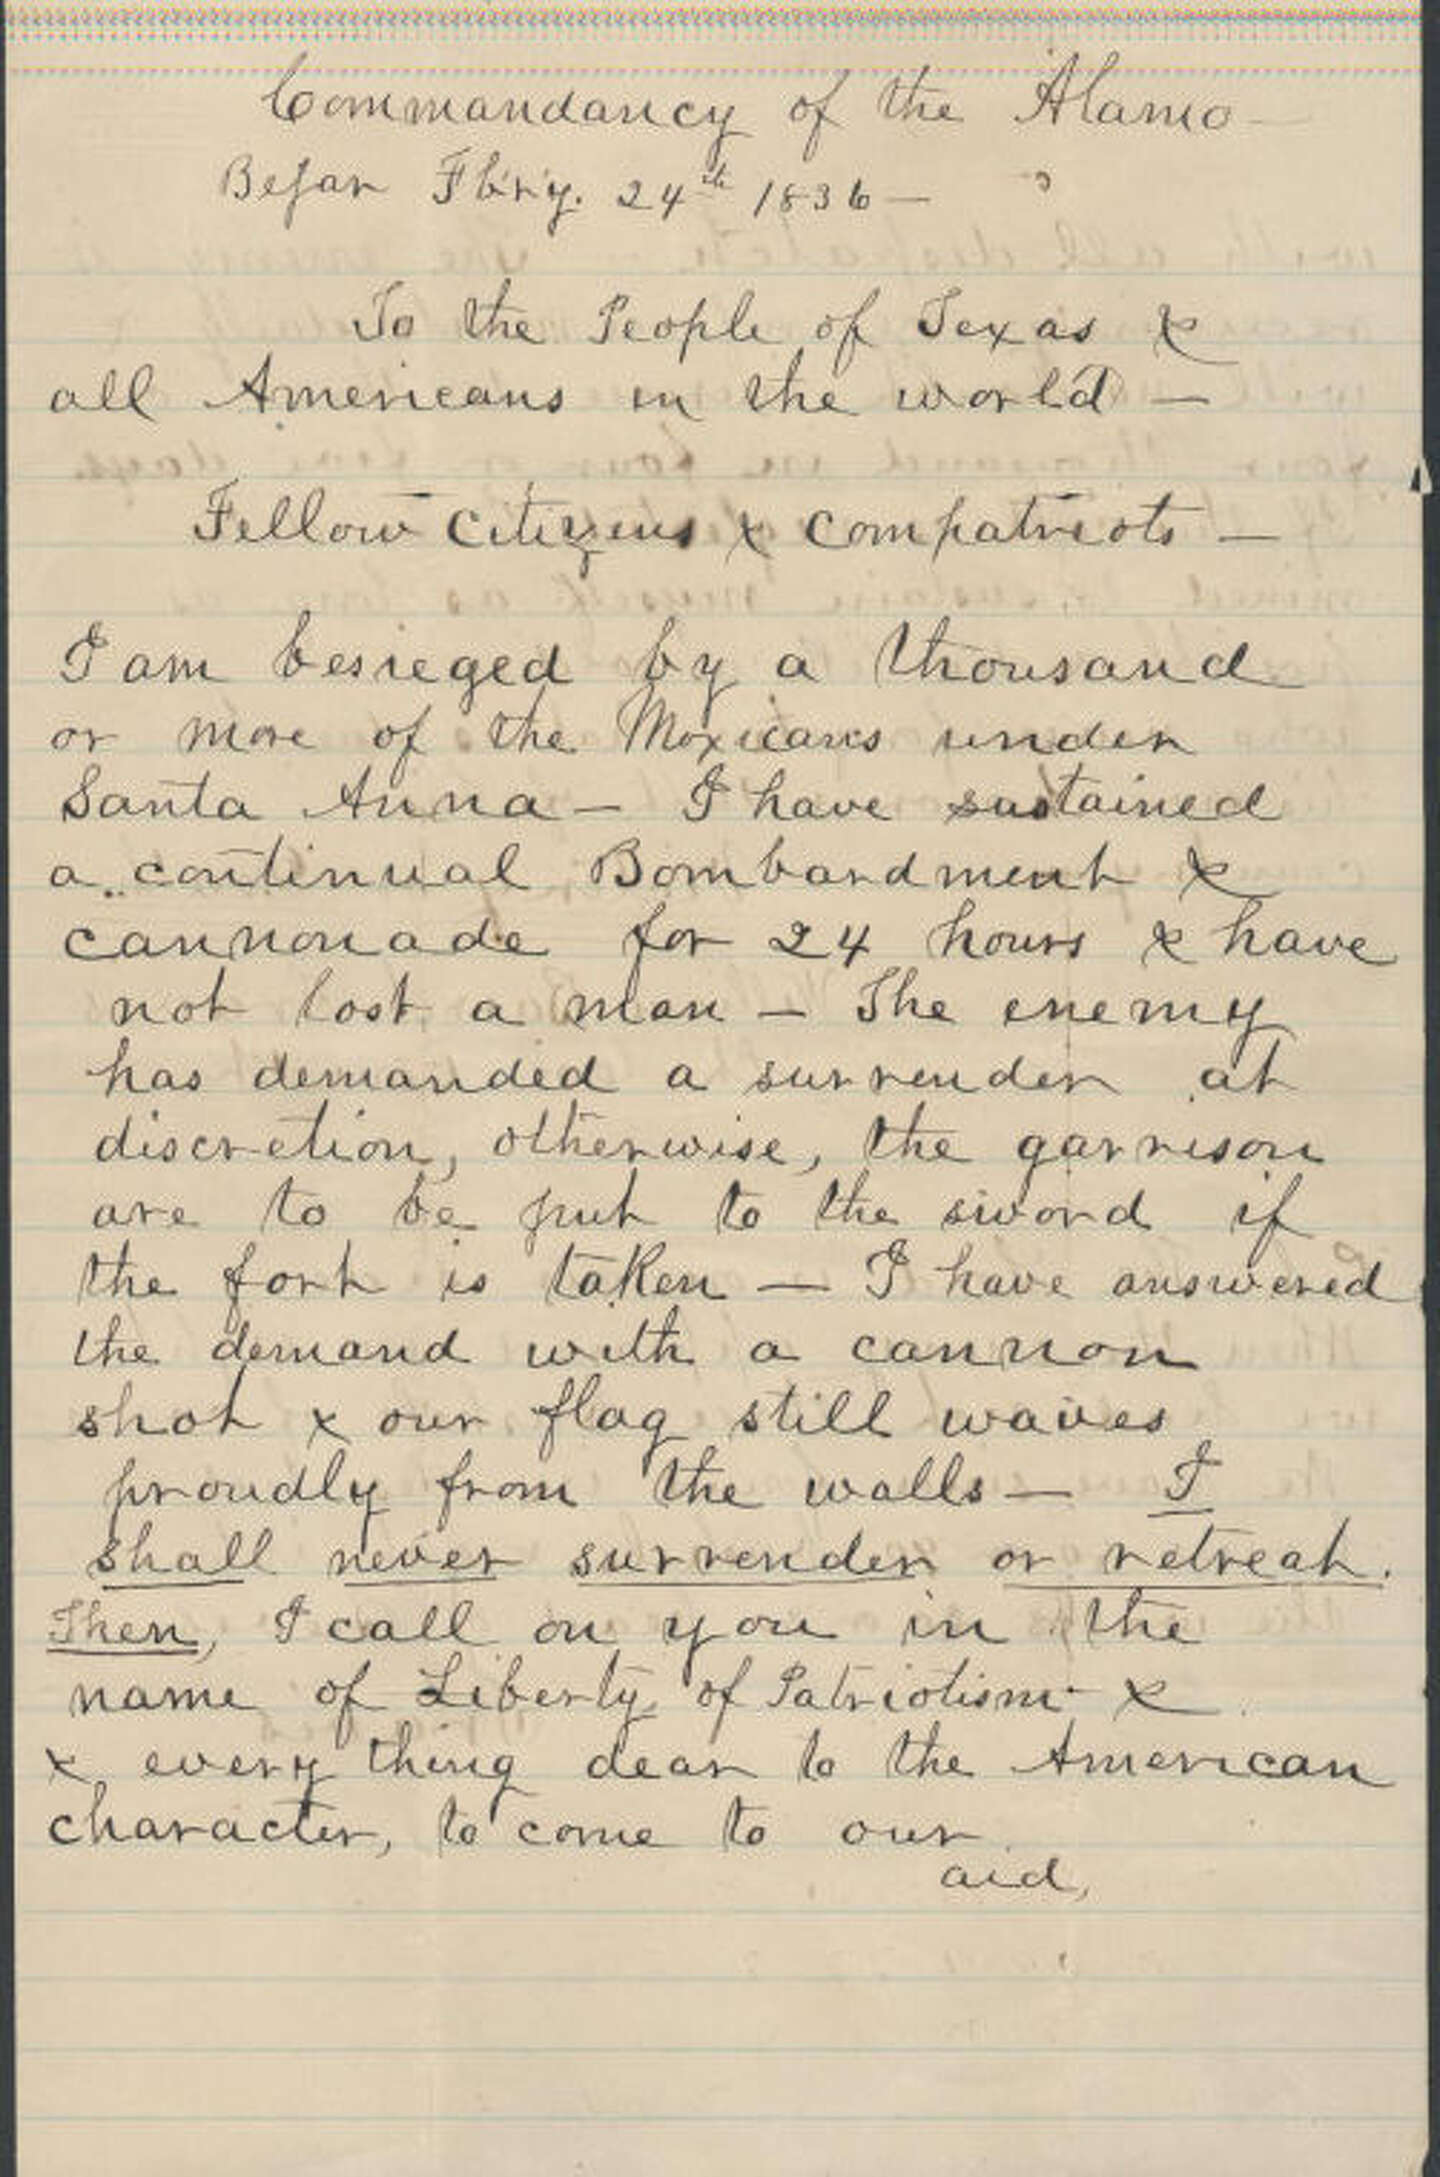 Commandancy of the Alamo—
Bejar Fbry. 24th 1836—
To the People of Texas &
all Americans in the world —
Fellow Citizens & Compatriots —
I am besieged by a thousand
or more of the Mexicans under
Santa Anna — I have sustained
a continual Bombardment &
cannonade for 24 hours & have
not lost a man — The enemy
has demanded a surrender at
discretion, otherwise, the garrison
are to be put to the sword if
the fort is taken — I have answered
the demand with a cannon
shot & our flag still waves
proudly from the walls — I
shall never surrender or retreat.
Then, I call on you in the
name of Liberty, of Patriotism &
& every thing dear to the American
character, to come to our
aid,